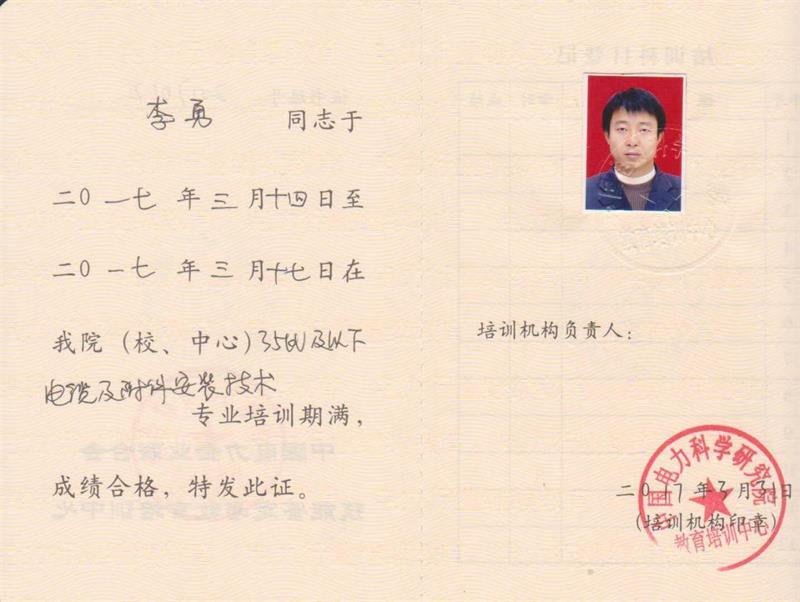 李勇 同志于
二〇一七年三月十四日至
二〇一七年三月十七日在
我院（校、中心）35kV及以下
电缆及附件安装技术
专业培训期满，
成绩合格，特发此证。
培训机构负责人：
中国电力科学研究院
二〇17年3月31日
（培训机构印章）
教育培训中心